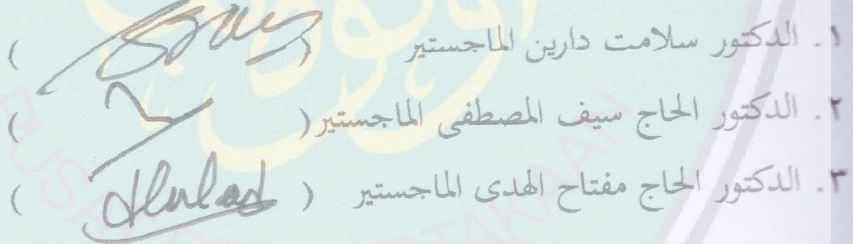 ١. الدكتور سلامت دارين الماجستير ( )
٢. الدكتور الحاج سيف المصطفى الماجستير ( )
٣. الدكتور الحاج مفتاح الهدى الماجستير ( )